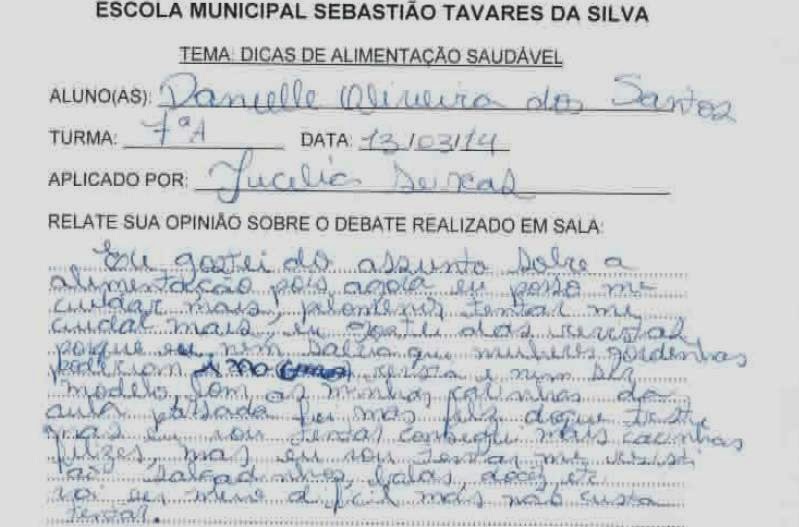 ESCOLA MUNICIPAL SEBASTIÃO TAVARES DA SILVA
TEMA: DICAS DE ALIMENTAÇÃO SAUDÁVEL
ALUNO(AS): Danielle Oliveira dos Santos
TURMA: 7ªA DATA: 13/03/14
APLICADO POR: Jucelia Seixas
RELATE SUA OPINIÃO SOBRE O DEBATE REALIZADO EM SALA:
Eu gostei do assunto sobre a
alimentação pois agora eu posso me
cuidar mais, tentar me
cuidar mais, eu gostei das revistas
porque eu nem sabia que mulheres gordinhas
poderiam no revista e nem ser
modelo, com as minhas carinhas da
aula passada foi mas feliz doque triste
mas eu vou tentar consegui mais carinhas
felizes, mas eu vou tentar me
ao salgadinhos, balas, doces etc
voi ser meio dificil mais não custa
tentar.